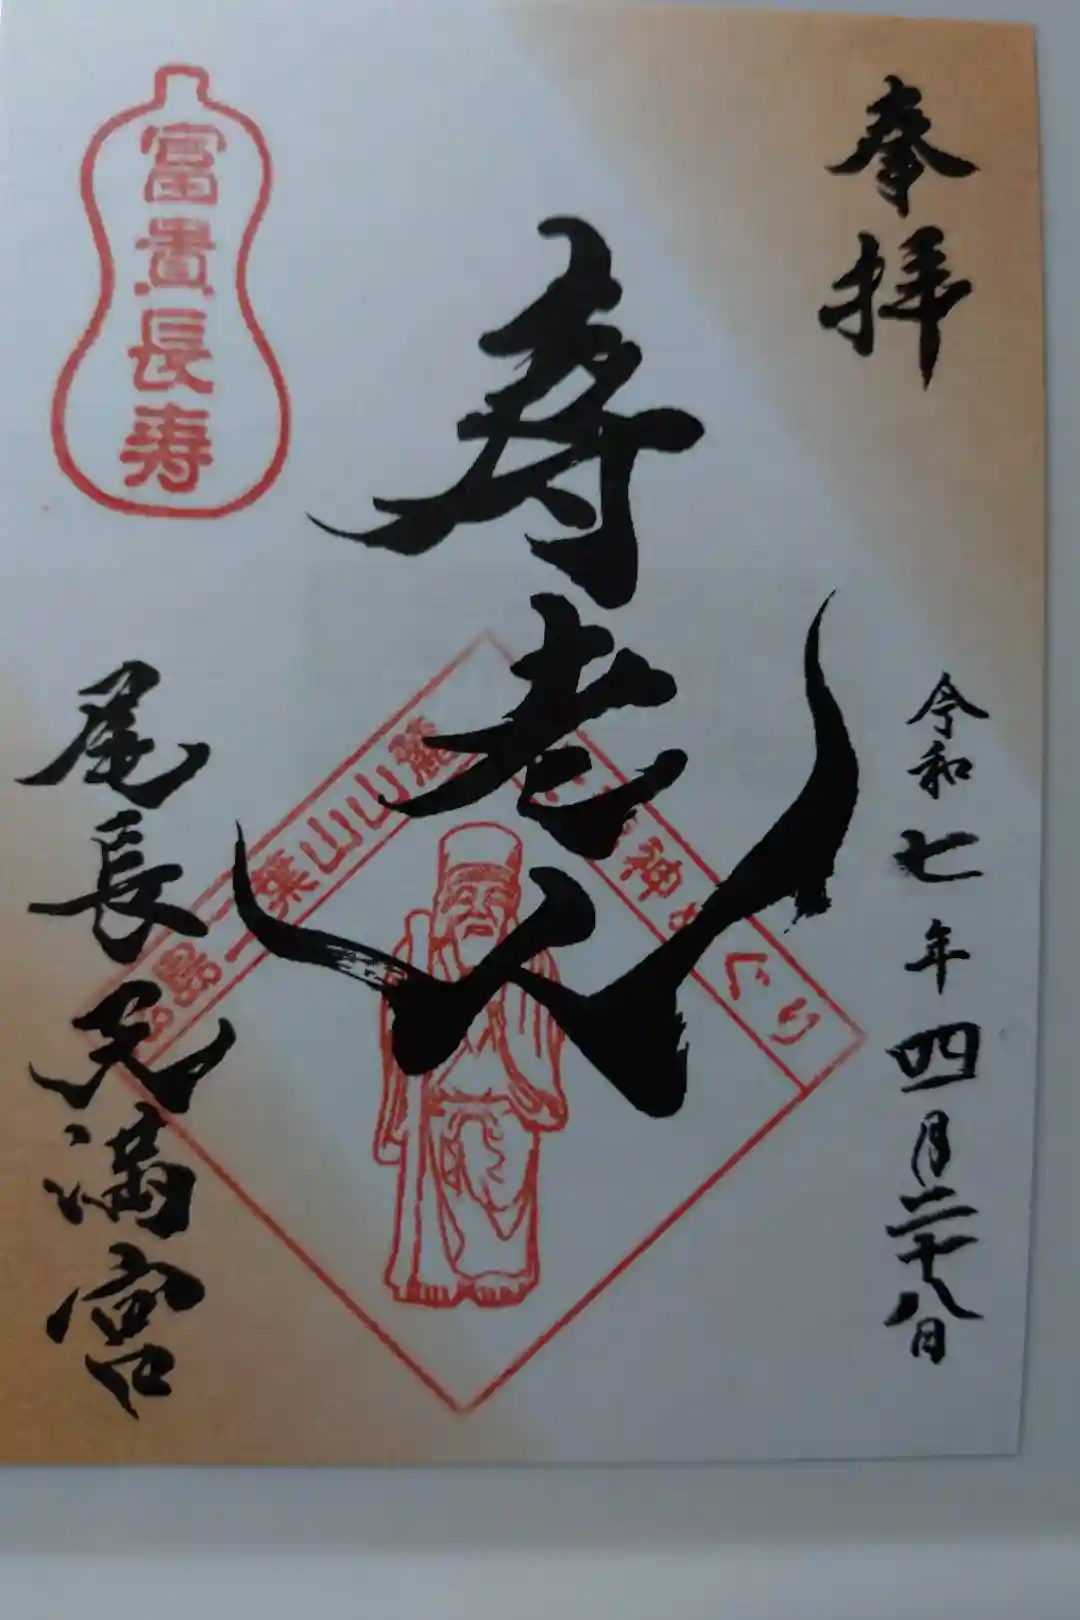 奉拝
寿老人
令和七年四月二十八日
富貴長寿
島二葉山山麓
神めぐり
尾長天満宮